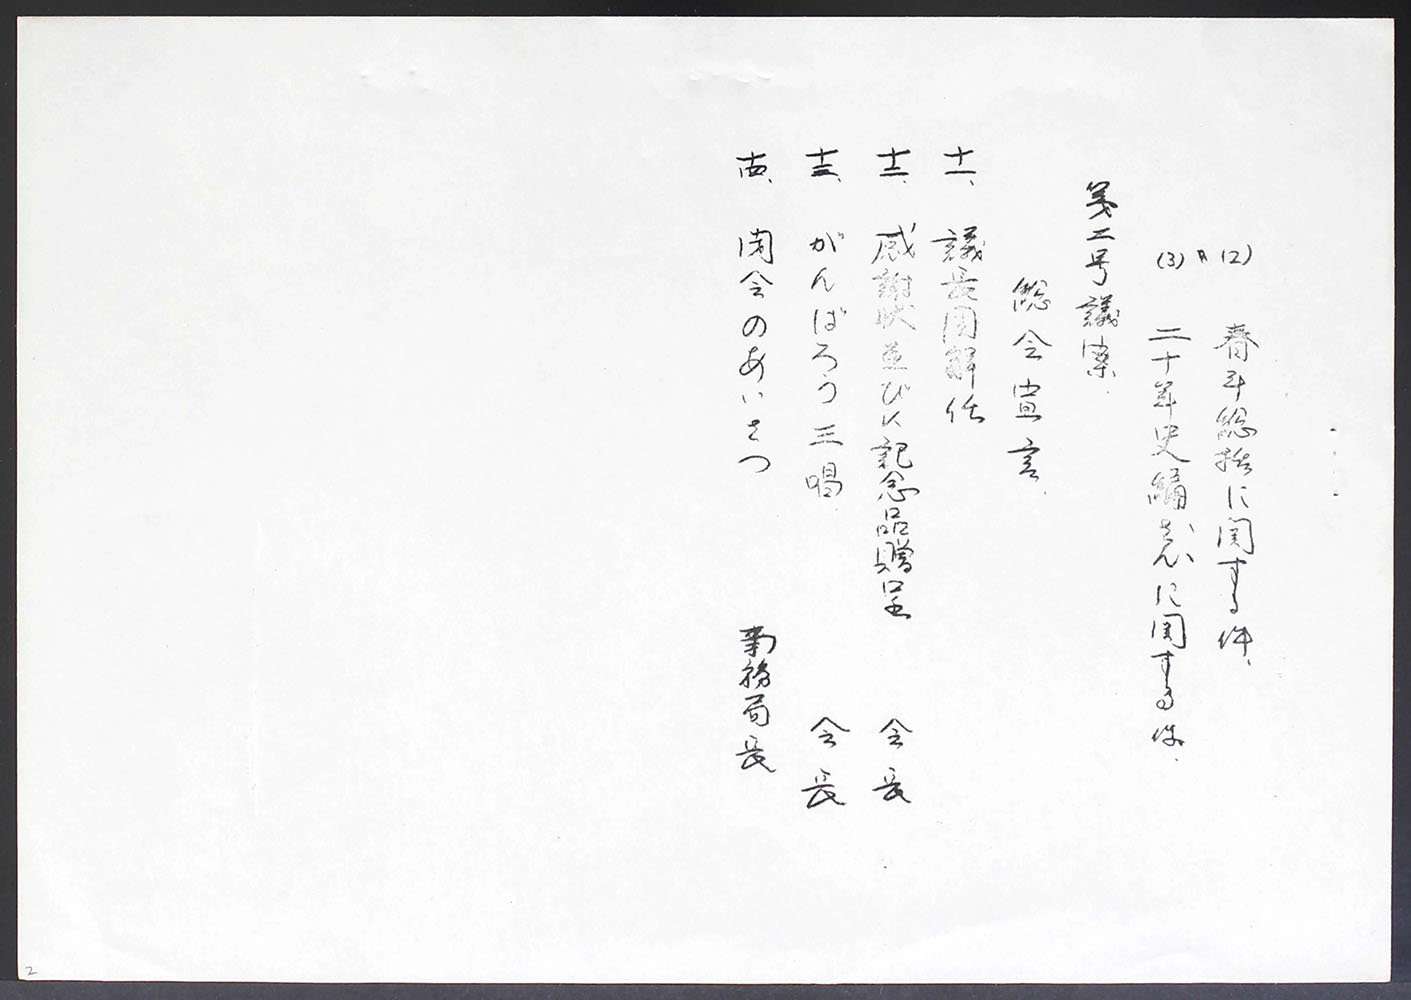 (2) 春斗総括に関する件、
(3) 〃 二十年史編さんに関する件.
第二号議案.
総会宣言.
十一、議長団解任
十二、感謝状並びに記念品贈呈 会長
十三、がんばろう三唱 会長
十四、閉会のあいさつ 事務局長
2